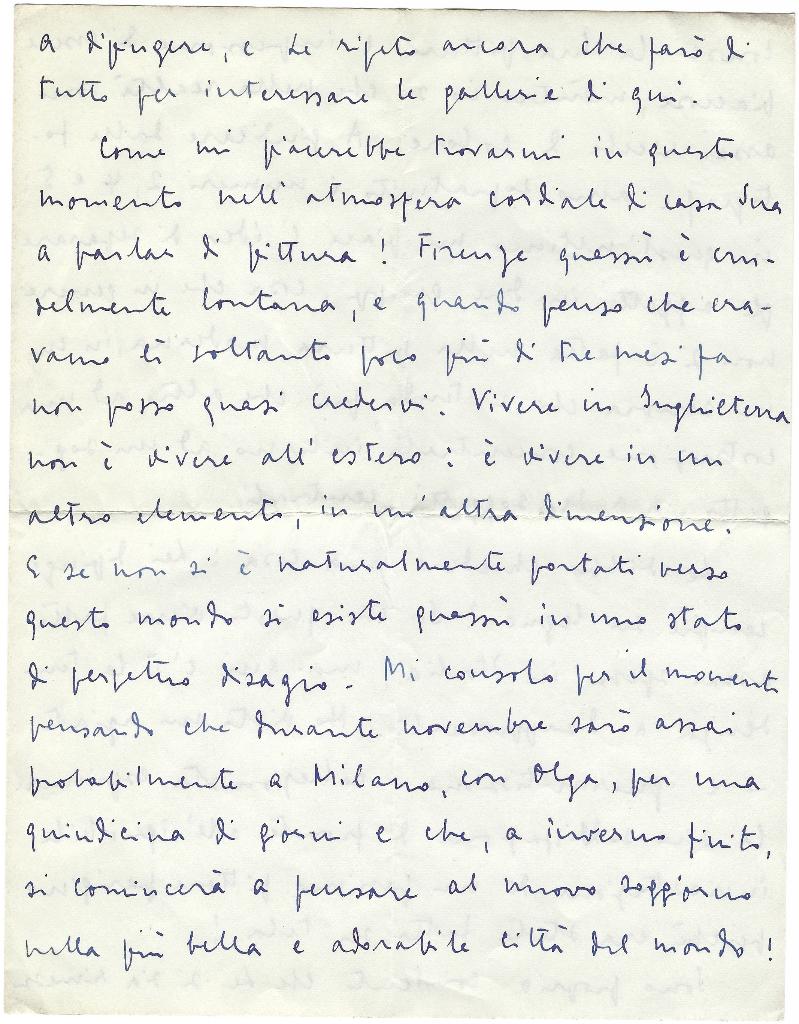 a dipingere, e Le ripeto ancora che farò di
tutto per interessare le gallerie di qui.
Come mi piacerebbe trovarmi in questo
momento nell'atmosfera cordiale di casa Sua
a parlar di pittura! Firenze quassù è cru-
delmente lontana, e quando penso che era-
vamo lì soltanto poco più di tre mesi fa
non posso quasi credervi. Vivere in Inghilterra
non è vivere all'estero: è vivere in un
altro elemento, in un'altra dimensione.
E se non si è naturalmente portati verso
questo mondo si esiste quassù in uno stato
di perpetuo disagio. Mi consolo per il momento
pensando che durante novembre sarò assai
probabilmente a Milano, con Olga, per una
quindicina di giorni e che, a inverno finito,
si comincerà a pensare al nuovo soggiorno
nella più bella e adorabile città del mondo!